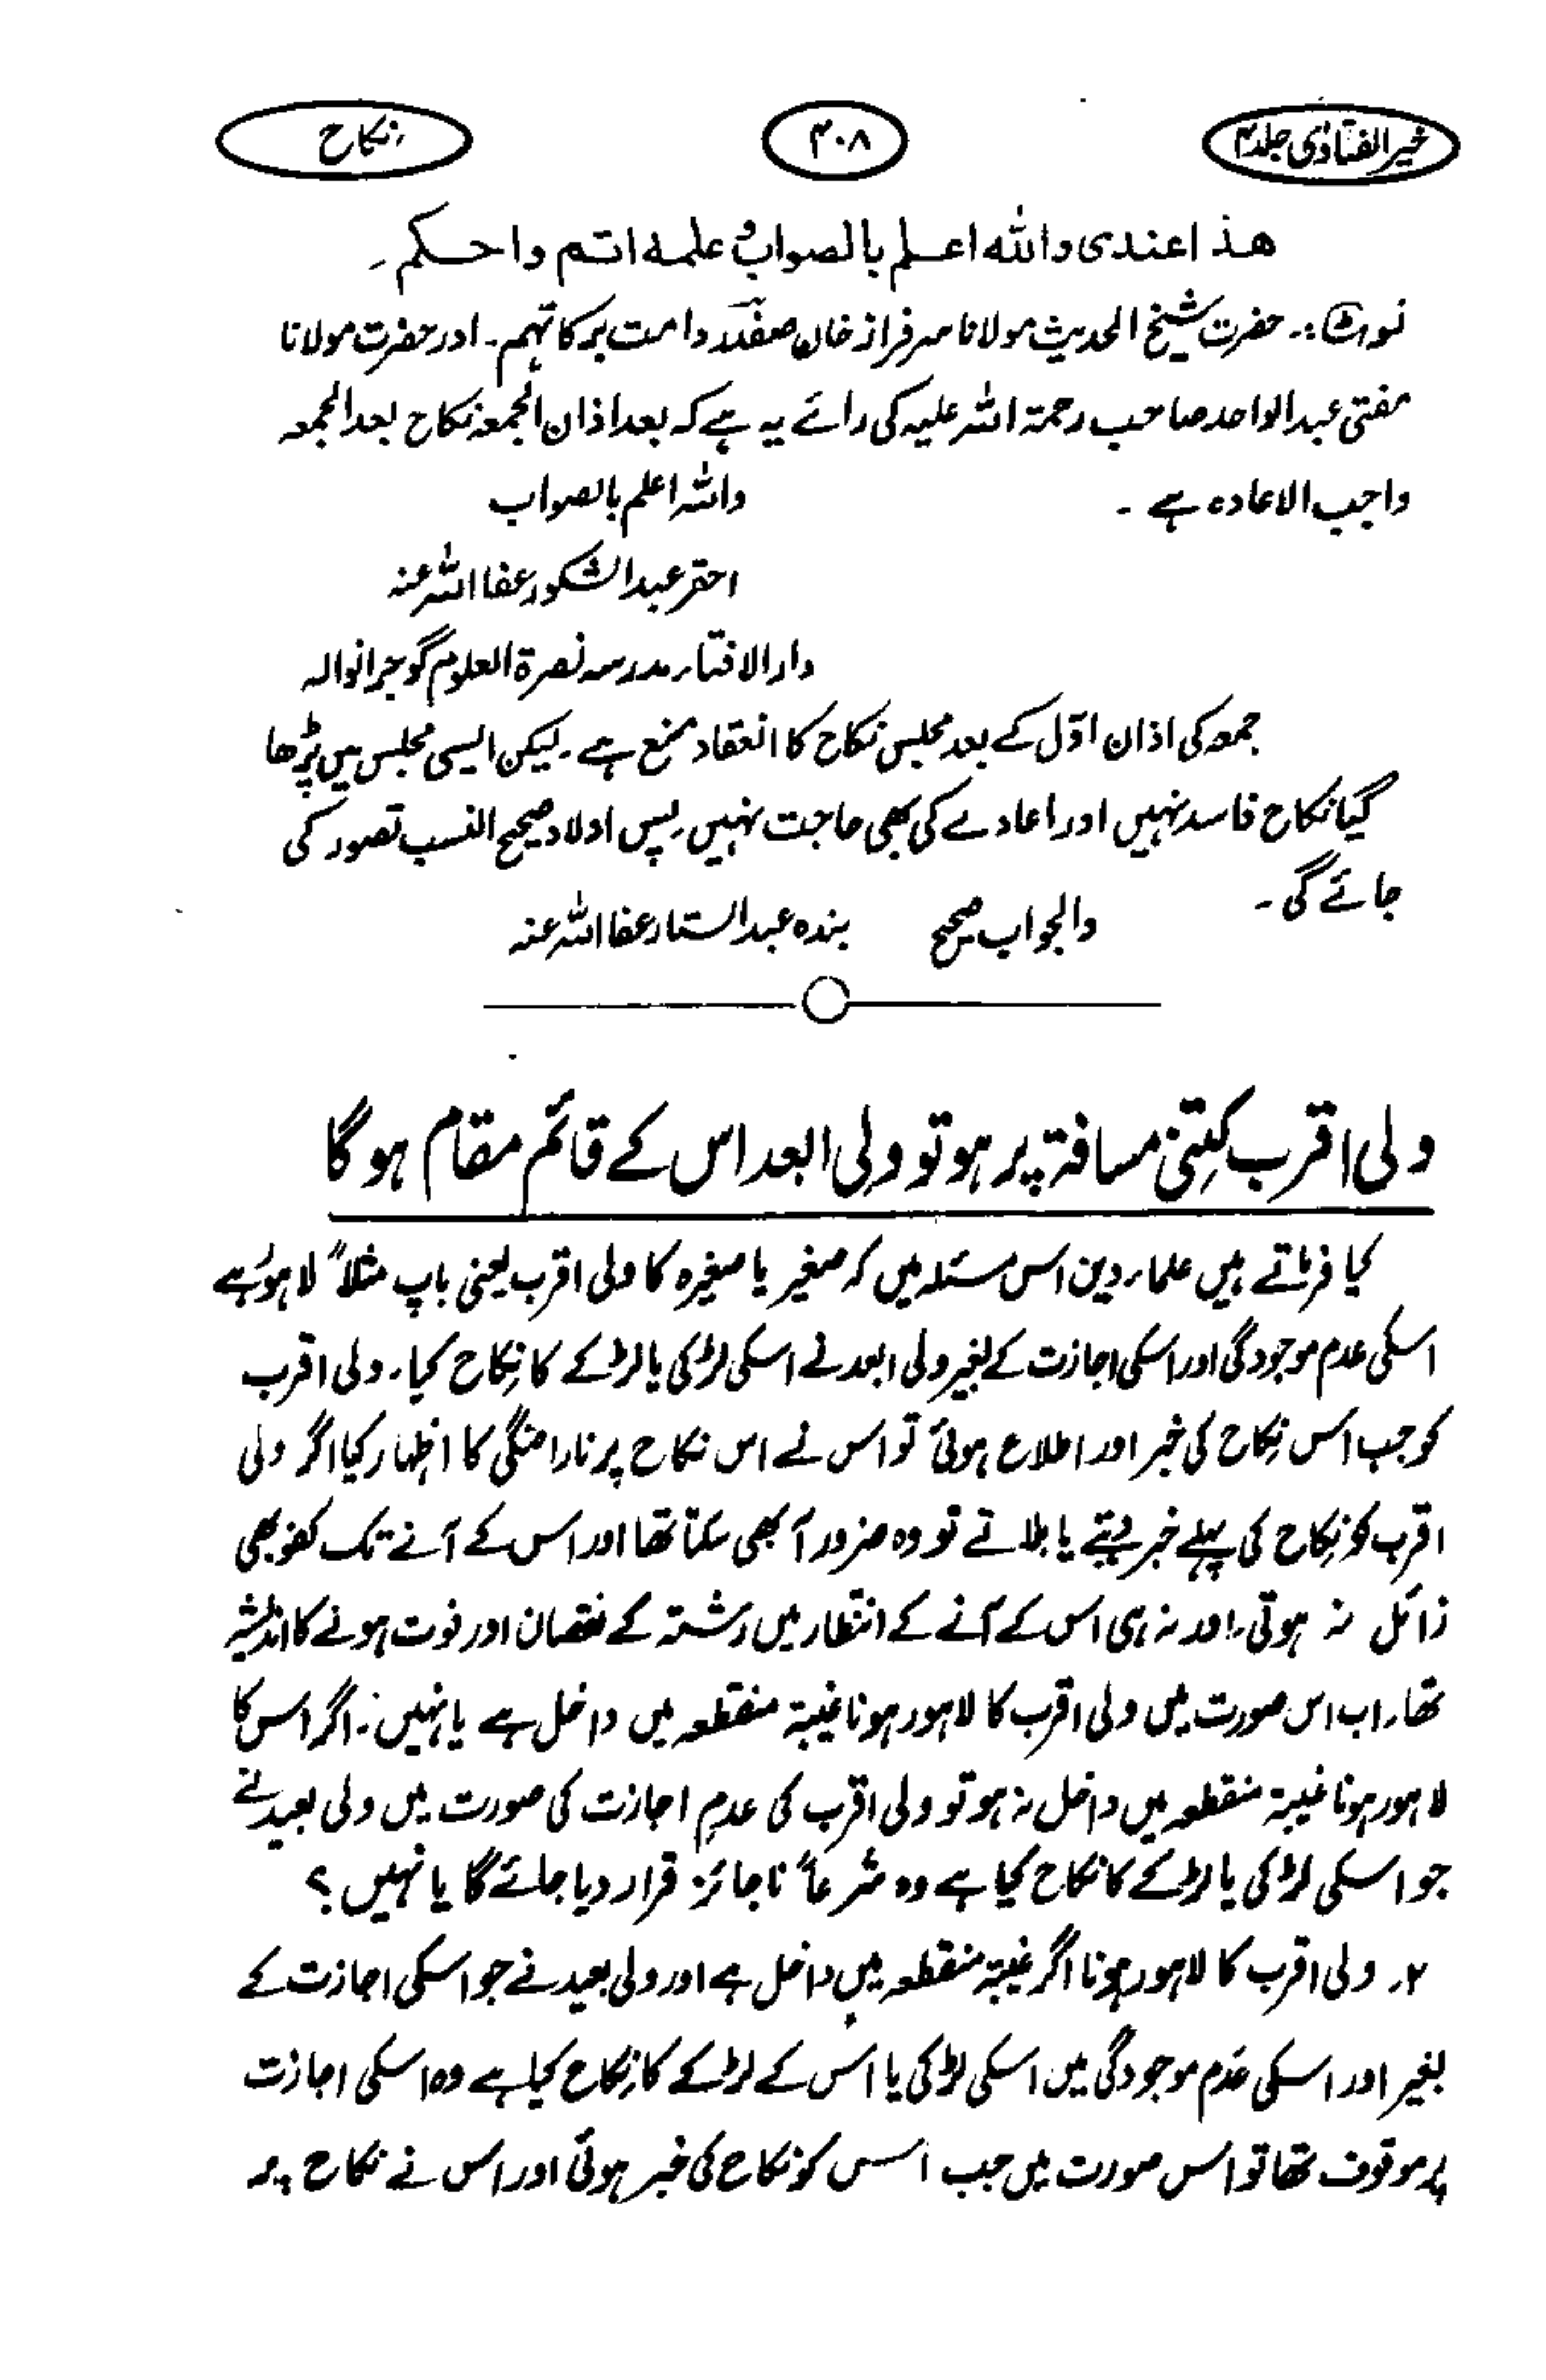 خیر الفتاوٰی جلد ۴
۴۰۸
نکاح
ھذا عندی واللہ اعلم بالصواب وعلمہ اتم واحکم ۔
نوٹ:۔ حضرت شیخ الحدیث مولانا سرفراز خان صفدر دامت برکاتہم۔ اور حضرت مولانا
مفتی عبدالواحد صاحب رحمۃ اللہ علیہ کی رائے یہ ہے کہ بعد اذان الجمعہ نکاح بعد الجمعہ
واجب الاعادہ ہے ۔ واللہ اعلم بالصواب
احقر عبدالشکور عفا اللہ عنہ
دارالافتاء مدرسہ نصرۃ العلوم گوجرانوالہ
جمعہ کی اذان اوّل کے بعد مجلس نکاح کا انعقاد منع ہے ۔ لیکن ایسی مجلس میں پڑھا
گیا نکاح فاسد نہیں اور اعادے کی بھی حاجت نہیں ۔ پس اولاد صحیح النسب تصور کی
جائے گی ۔ والجواب صحیح بندہ عبدالستار عفا اللہ عنہ
ولی اقرب کتنی مسافۃ پر ہو تو ولی ابعد اس کے قائم مقام ہو گا
کیا فرماتے ہیں علماء دین اس مسئلہ میں کہ صغیر یا صغیرہ کا ولی اقرب یعنی باپ مثلاً لاہور ہے
اسکی عدم موجودگی اور اسکی اجازت کے بغیر ولی ابعد نے اسکی لڑکی یا لڑکے کا نکاح کیا ۔ ولی اقرب
کو جب اس نکاح کی خبر اور اطلاع ہوئی تو اس نے اس نکاح پر ناراضگی کا اظہار کیا اگر ولی
اقرب کو نکاح کی پہلے خبر دیتے یا بلاتے تو وہ ضرور آ بھی سکتا تھا اور اس کے آنے تک کفو بھی
زائل نہ ہوتی ۔ اور نہ ہی اس کے آنے کے انتظار میں رشتہ کے نقصان اور فوت ہونے کا اندیشہ
تھا ۔ اب اس صورت میں ولی اقرب کا لاہور ہونا غیبۃ منقطعہ میں داخل ہے یا نہیں ۔ اگر اس کا
لاہور ہونا غیبۃ منقطعہ میں داخل نہ ہو تو ولی اقرب کی عدمِ اجازت کی صورت میں ولی بعید نے
جو اسکی لڑکی یا لڑکے کا نکاح کیا ہے وہ شرعاً ناجائز قرار دیا جائے گا یا نہیں ؟
۲۔ ولی اقرب کا لاہور ہونا اگر غیبۃ منقطعہ میں داخل ہے اور ولی بعید نے جو اسکی اجازت کے
بغیر اور اسکی عدم موجودگی میں اسکی لڑکی یا اس کے لڑکے کا نکاح کیا ہے وہ اسکی اجازت
پر موقوف تھا تو اس صورت میں جب اس کو نکاح کی خبر ہوئی اور اس نے نکاح پر